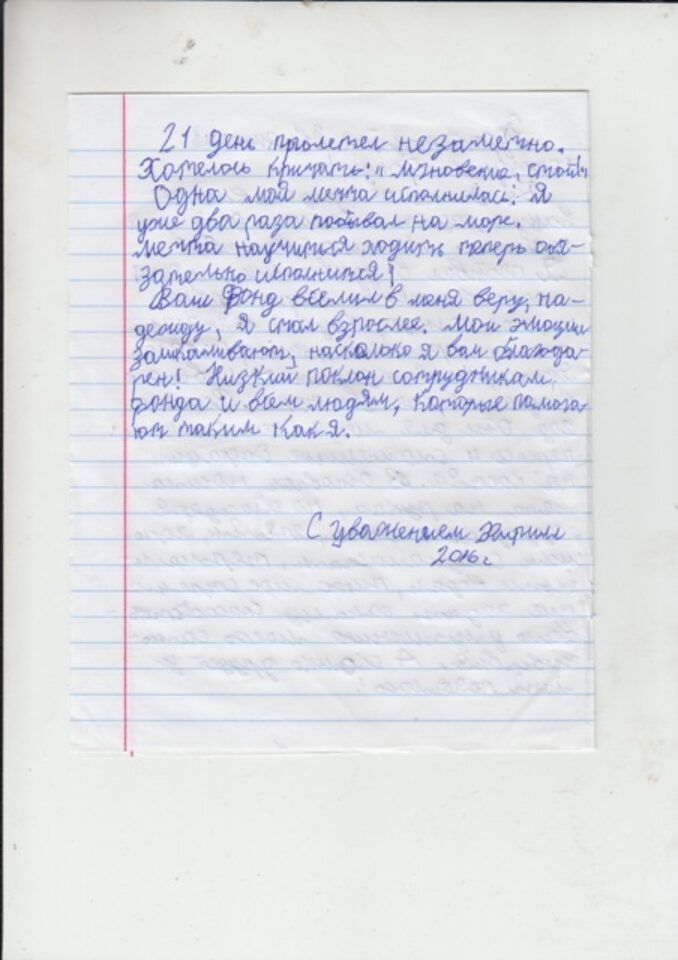 21 день пролетел незаметно.
Хотелось кричать: "мгновение, стой!"
Одна моя мечта исполнилась: Я
уже два раза побывал на море.
Мечта научиться ходить теперь обя-
зательно исполнится!
Ваш Фонд вселил в меня веру, на-
дежду, Я стал взрослее. Мои эмоции
зашкаливают, насколько я вам благода-
рен! Низкий поклон сотрудникам
фонда и всем людям, которые помога-
ют таким как я.
С уважением
2016г